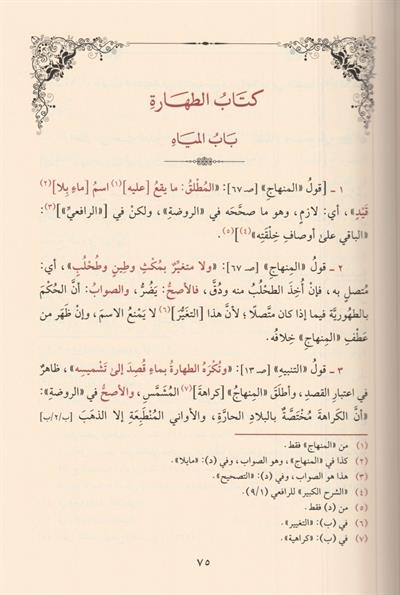 كتَابُ الطهَارةِ
بَابُ المِيَاهِ
١ ـ [قولُ «المنهاجِ» [صـ ٦٧]: «المُطْلَقُ: ما يقعُ [عليهِ](١) اسمُ [ماءٍ بِلا](٢)
قَيْدٍ» ، أي: لازمٍ، وهو ما صحَّحَه في «الروضةِ» ، ولكنْ في [«الرافعيِّ»](٣):
«الباقي علىٰ أوصافِ خِلْقَتِه»(٤)](٥).
٢ ـ قولُ «المِنهاجِ» [صـ ٦٧]: «ولا متغيِّرٌ بمُكْثٍ وطِينٍ وطُحْلُبٍ» ، أي:
مُتصلٍ به ، فإنْ أُخِذَ الطحْلُبُ منه ودُقَّ ، فالأصحُّ: يَضُرُّ ، والصوابُ: أنَّ الحُكمَ
بالطهُوريَّة فيما إذا كان متَّصلًا؛ لأنَّ هذا [التغيُّرَ](٦) لا يَمْنعُ الاسمَ، وإنْ ظَهَر من
عَطْفِ «المِنهاجِ» خِلافُه.
٣ ـ قولُ «التنبيهِ» [صـ ١٣]: «وتُكْرَهُ الطهارةُ بماءٍ قُصِدَ إلىٰ تَشْمِيسِه» ، ظاهرٌ
في اعتبارِ القصدِ، وأطلَقَ «المِنهاجُ» [كراهةَ](٧) المُشَمَّسِ، والأصحُّ في «الروضةِ»:
«أنَّ الكراهةَ مُخْتَصَّةٌ بالبلادِ الحارَّةِ، والأواني المُنْطَبِعةِ إلا الذهبَ [ب/٢/ب]
(١) من «المنهاج» فقط.
(٢) كذا في «المنهاج» ، وهو الصواب ، وفي (د): «مابلا» .
(٣) هذا هو الصواب ، وفي (د): «التصحيح» .
(٤) «الشرح الكبير» للرافعي (٩/١).
(٥) من (د) فقط.
(٦) في (ب): «التغيير» .
(٧) في (ب): «كراهية» .
٧٥